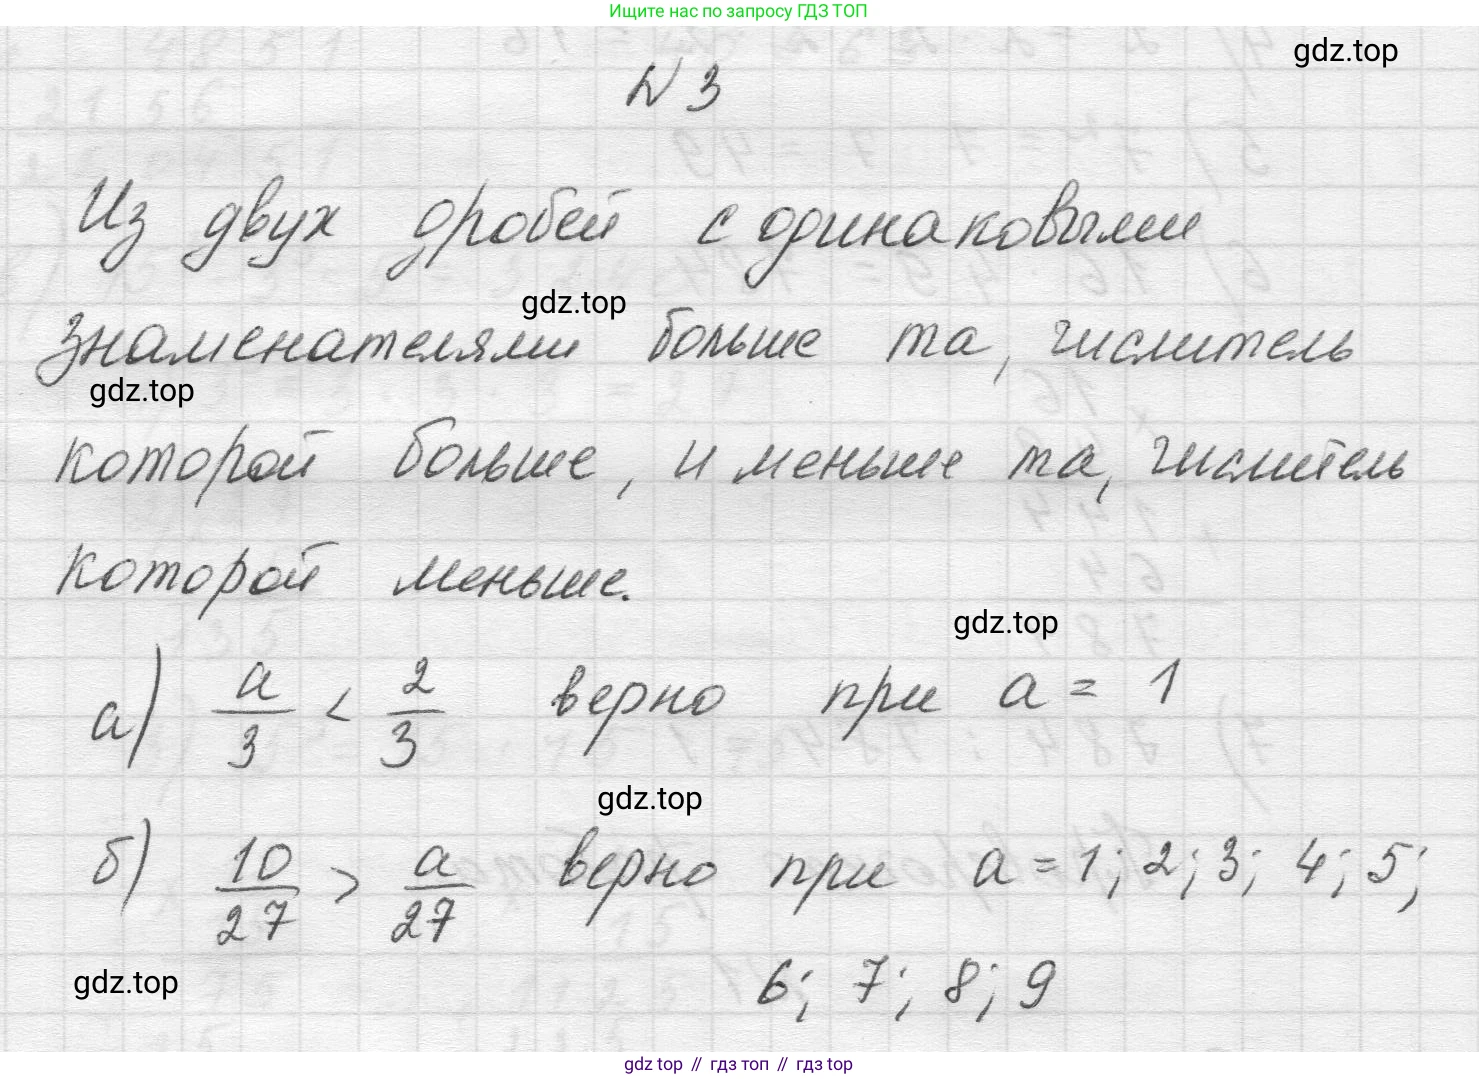 Ищите нас по запросу ГДЗ ТОП
gdz.top
N 3
Из двух дробей с одинаковыми
gdz.top
знаменателями больше та, числитель
gdz.top
которой больше, и меньше та, числитель
которой меньше.
gdz.top
а) a/3 < 2/3 верно при a = 1
gdz.top
б) 10/27 > a/27 верно при a = 1; 2; 3; 4; 5;
gdz.top
6; 7; 8; 9
gdz top // гдз топ // gdz top